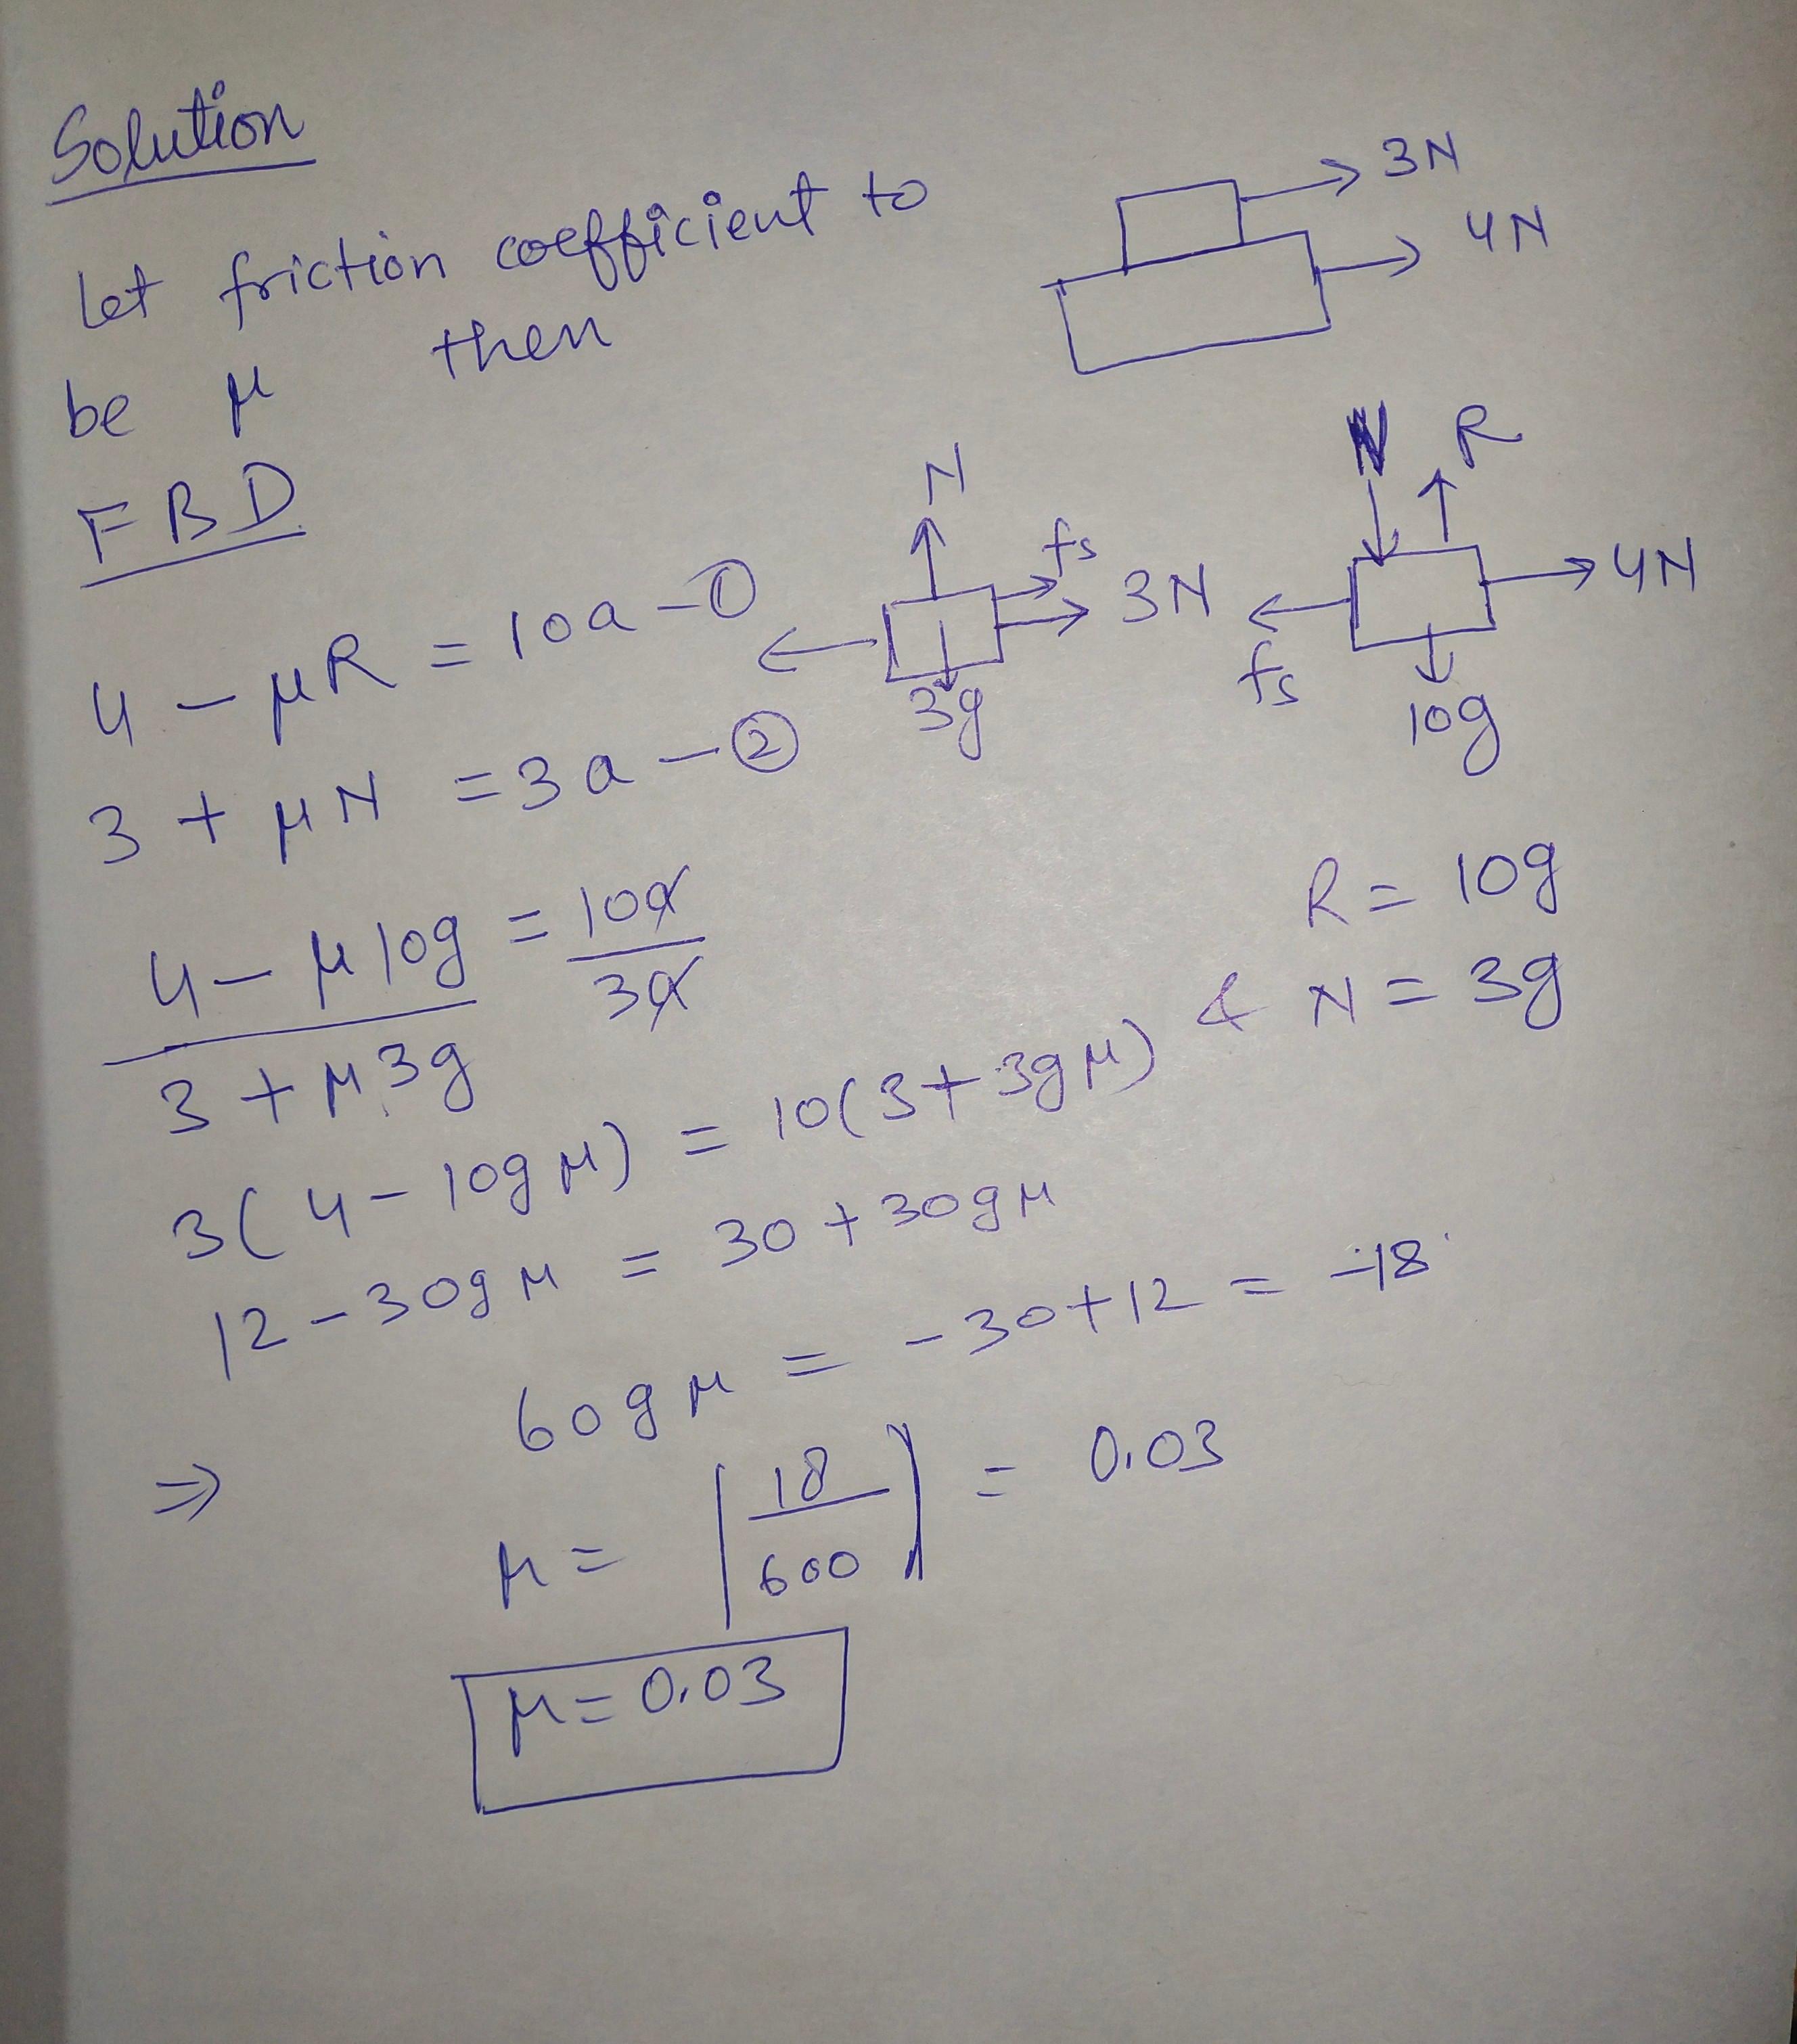 Solution
Let friction coefficient to
be μ then
3N
4N
FBD
N
fs
3N
3g
N R
4N
fs
10g
4 - μR = 10a - ①
3 + μN = 3a - ②
4 - μ10g / 3 + μ3g = 10a / 3a
R = 10g
& N = 3g
3(4 - 10gμ) = 10(3 + 3gμ)
12 - 30gμ = 30 + 30gμ
60gμ = -30 + 12 = -18
⇒ μ = |18/600| = 0.03
μ = 0.03